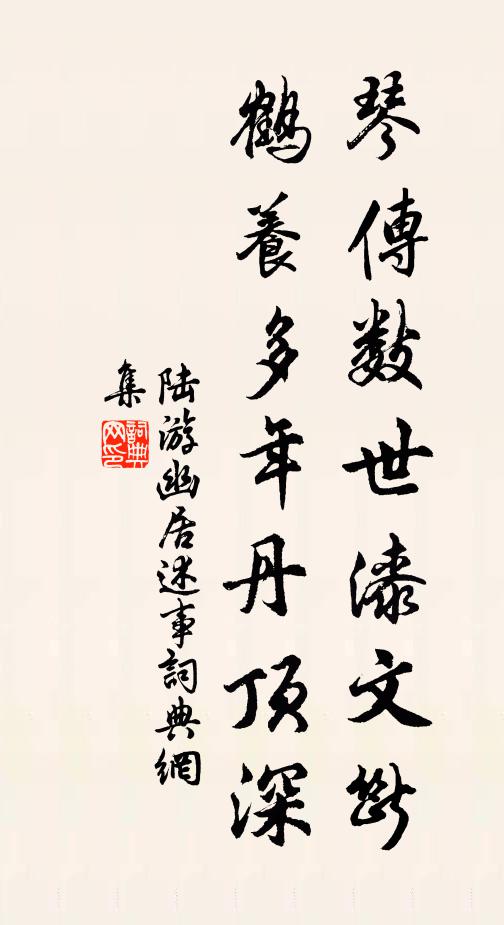 琴傳數世漆文斷
鶴養多年丹頂深
陸游幽居述事詞典網
集
詞典
网印